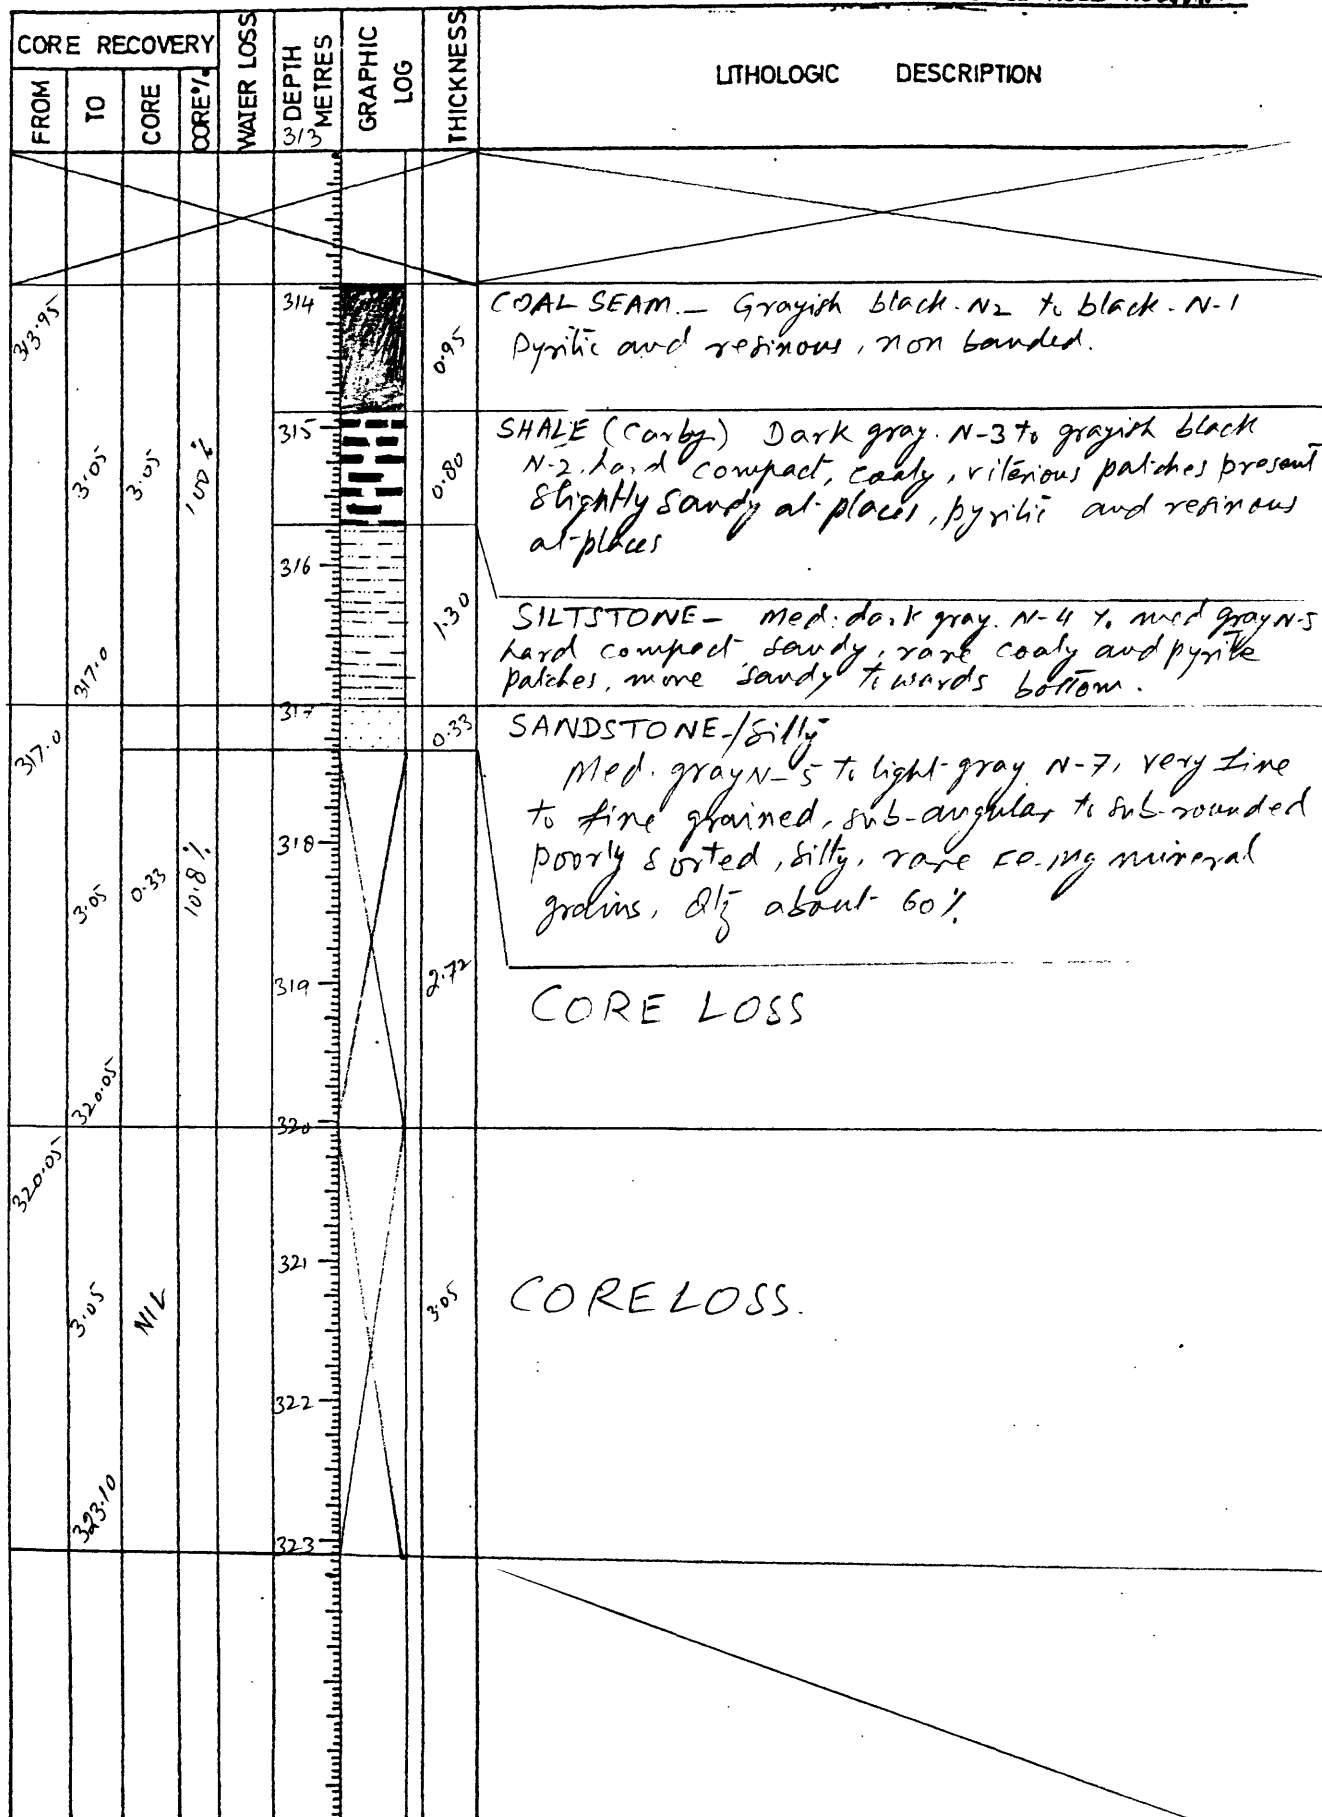 CORE RECOVERY
FROM
TO
CORE
CORE%
WATER LOSS
DEPTH METRES
313
GRAPHIC LOG
THICKNESS
LITHOLOGIC DESCRIPTION
313.95
3.05
3.05
100%
317.0
314
0.95
COAL SEAM.— Grayish black. N2 to black. N-1
Pyritic and resinous, non banded.
315
0.80
SHALE (Carby.) Dark gray. N-3 to grayish black
N-2. hard compact, coaly, viterious patches present
slightly sandy at places, pyritic and resinous
at places
316
1.30
SILTSTONE— Med. dark gray. N-4 to med gray N-5
hard compact sandy, rare coaly and pyrite
patches, more sandy towards bottom.
317
317.0
3.05
0.33
10.8%
320.05
0.33
SANDSTONE-/Silty
Med. gray N-5 to light gray N-7, very fine
to fine grained, sub-angular to sub-rounded
poorly sorted, silty, rare Fe-Mg mineral
grains, Qtz about 60%
318
319
2.72
CORE LOSS
320
320.05
3.05
NIL
323.10
321
3.05
CORE LOSS.
322
323